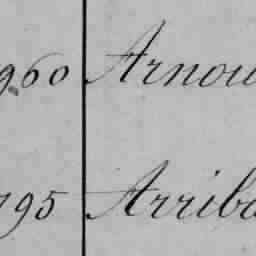 960 Arnou
795 Arriba